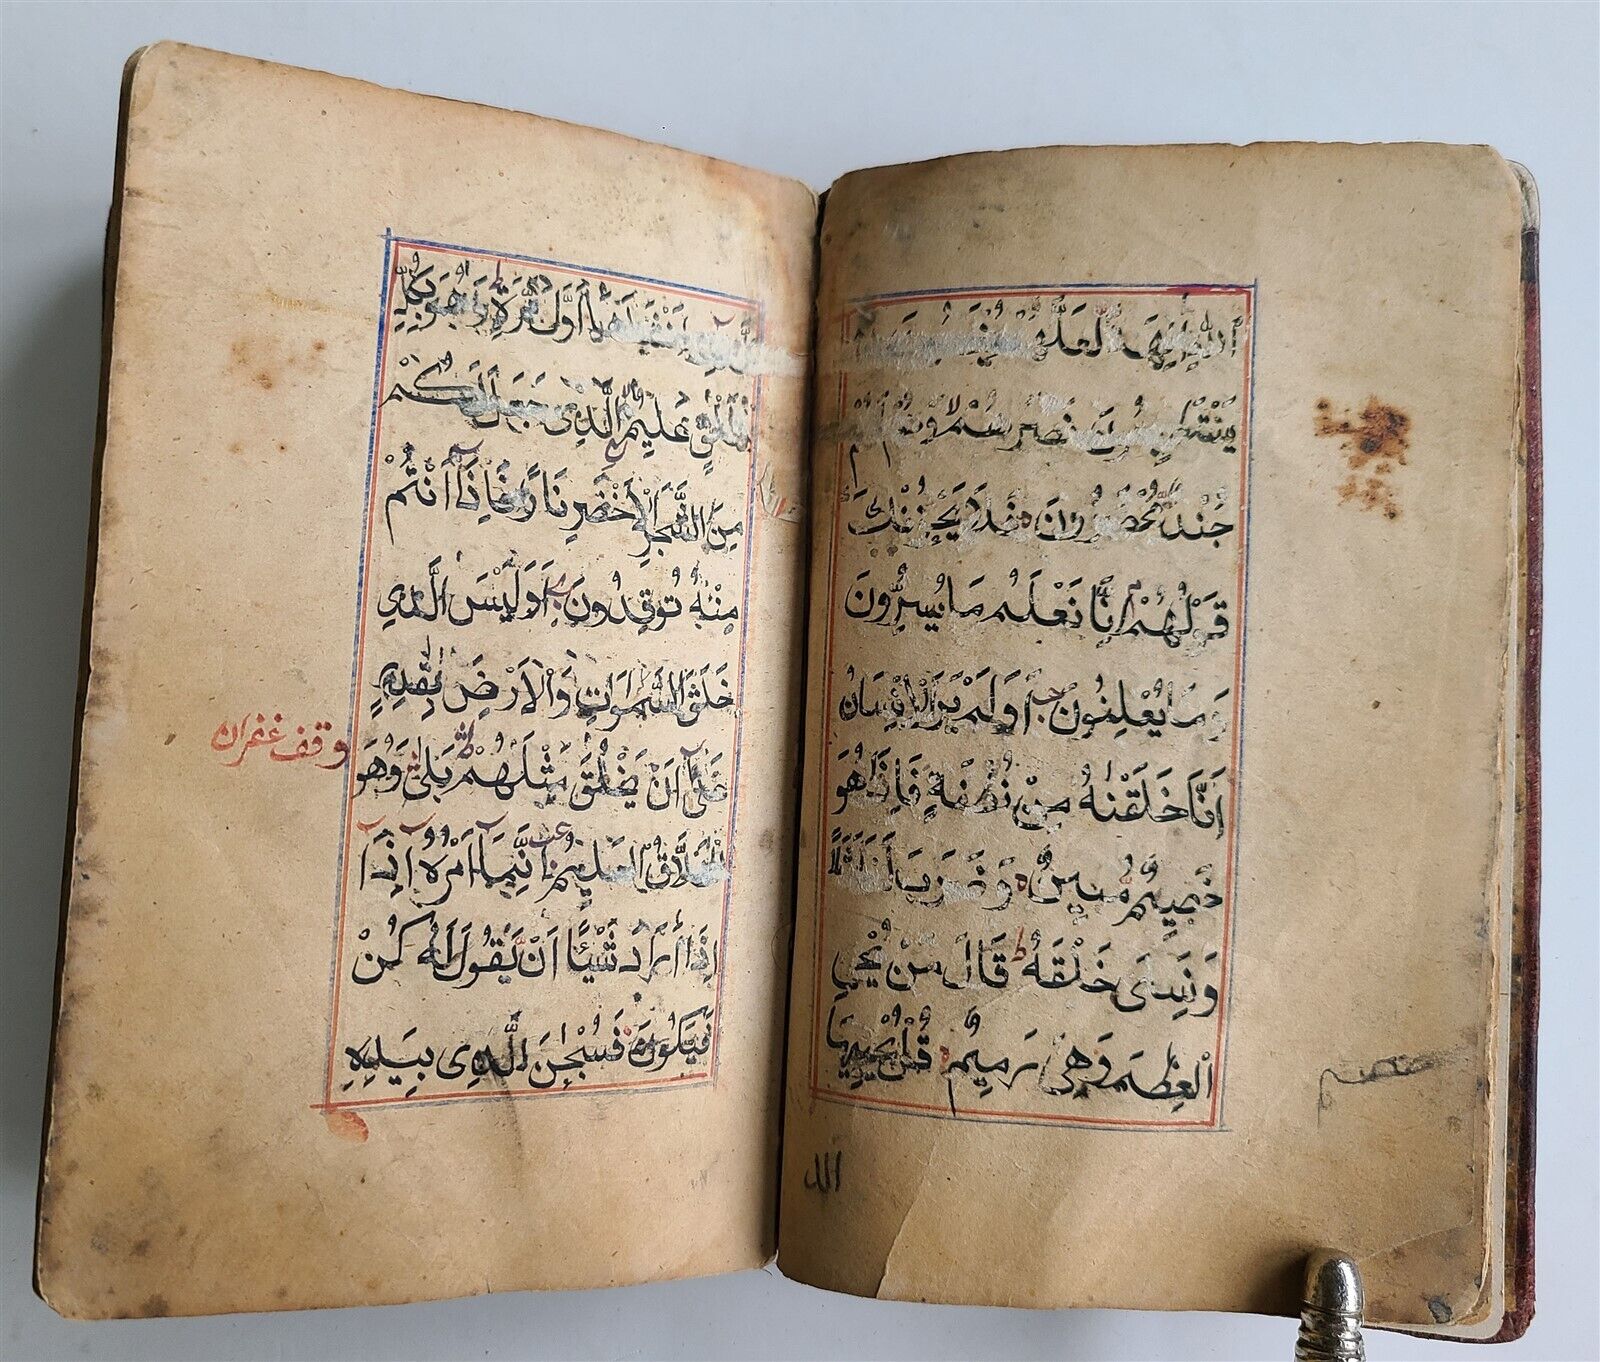 الله الهة لعلهم
نصرهم وهم لهم
جُنْدٌ مُحْضَرُونَ فَلَا يَحْزُنْكَ
قَوْلُهُمْ اِنَّا نَعْلَمُ مَا يُسِرُّونَ
وَمَا يُعْلِنُونَ اَوَلَمْ يَرَ الْاِنْسَانُ
اَنَّا خَلَقْنٰهُ مِنْ نُطْفَةٍ فَاِذَا هُوَ
خَصِيمٌ مُبِينٌ وَضَرَبَ لَنَا مَثَلًا
وَنَسِىَ خَلْقَهُ قَالَ مَنْ يُحْيِ
الْعِظٰمَ وَهِىَ رَمِيمٌ قُلْ يُحْيِيهَا
الذ
الَّذِي اَنْشَاَهَا اَوَّلَ مَرَّةٍ وَهُوَ بِكُلِّ
خَلْقٍ عَلِيمٌ الَّذِى جَعَلَ لَكُمْ
مِنَ الشَّجَرِ الْاَخْضَرِ نَارًا فَاِذَا اَنْتُمْ
مِنْهُ تُوقِدُونَ اَوَلَيْسَ الَّذِي
خَلَقَ السَّمٰوَاتِ وَالْاَرْضَ بِقٰدِرٍ
عَلٰى اَنْ يَخْلُقَ مِثْلَهُمْ بَلٰى وَهُوَ
وقف غفران
الْخَلَّاقُ الْعَلِيمُ اِنَّمَا اَمْرُهُ اِذَا
اِذَا اَرَادَ شَيْئًا اَنْ يَقُولَ لَهُ كُنْ
فَيَكُونُ فَسُبْحٰنَ الَّذِى بِيَدِهِ